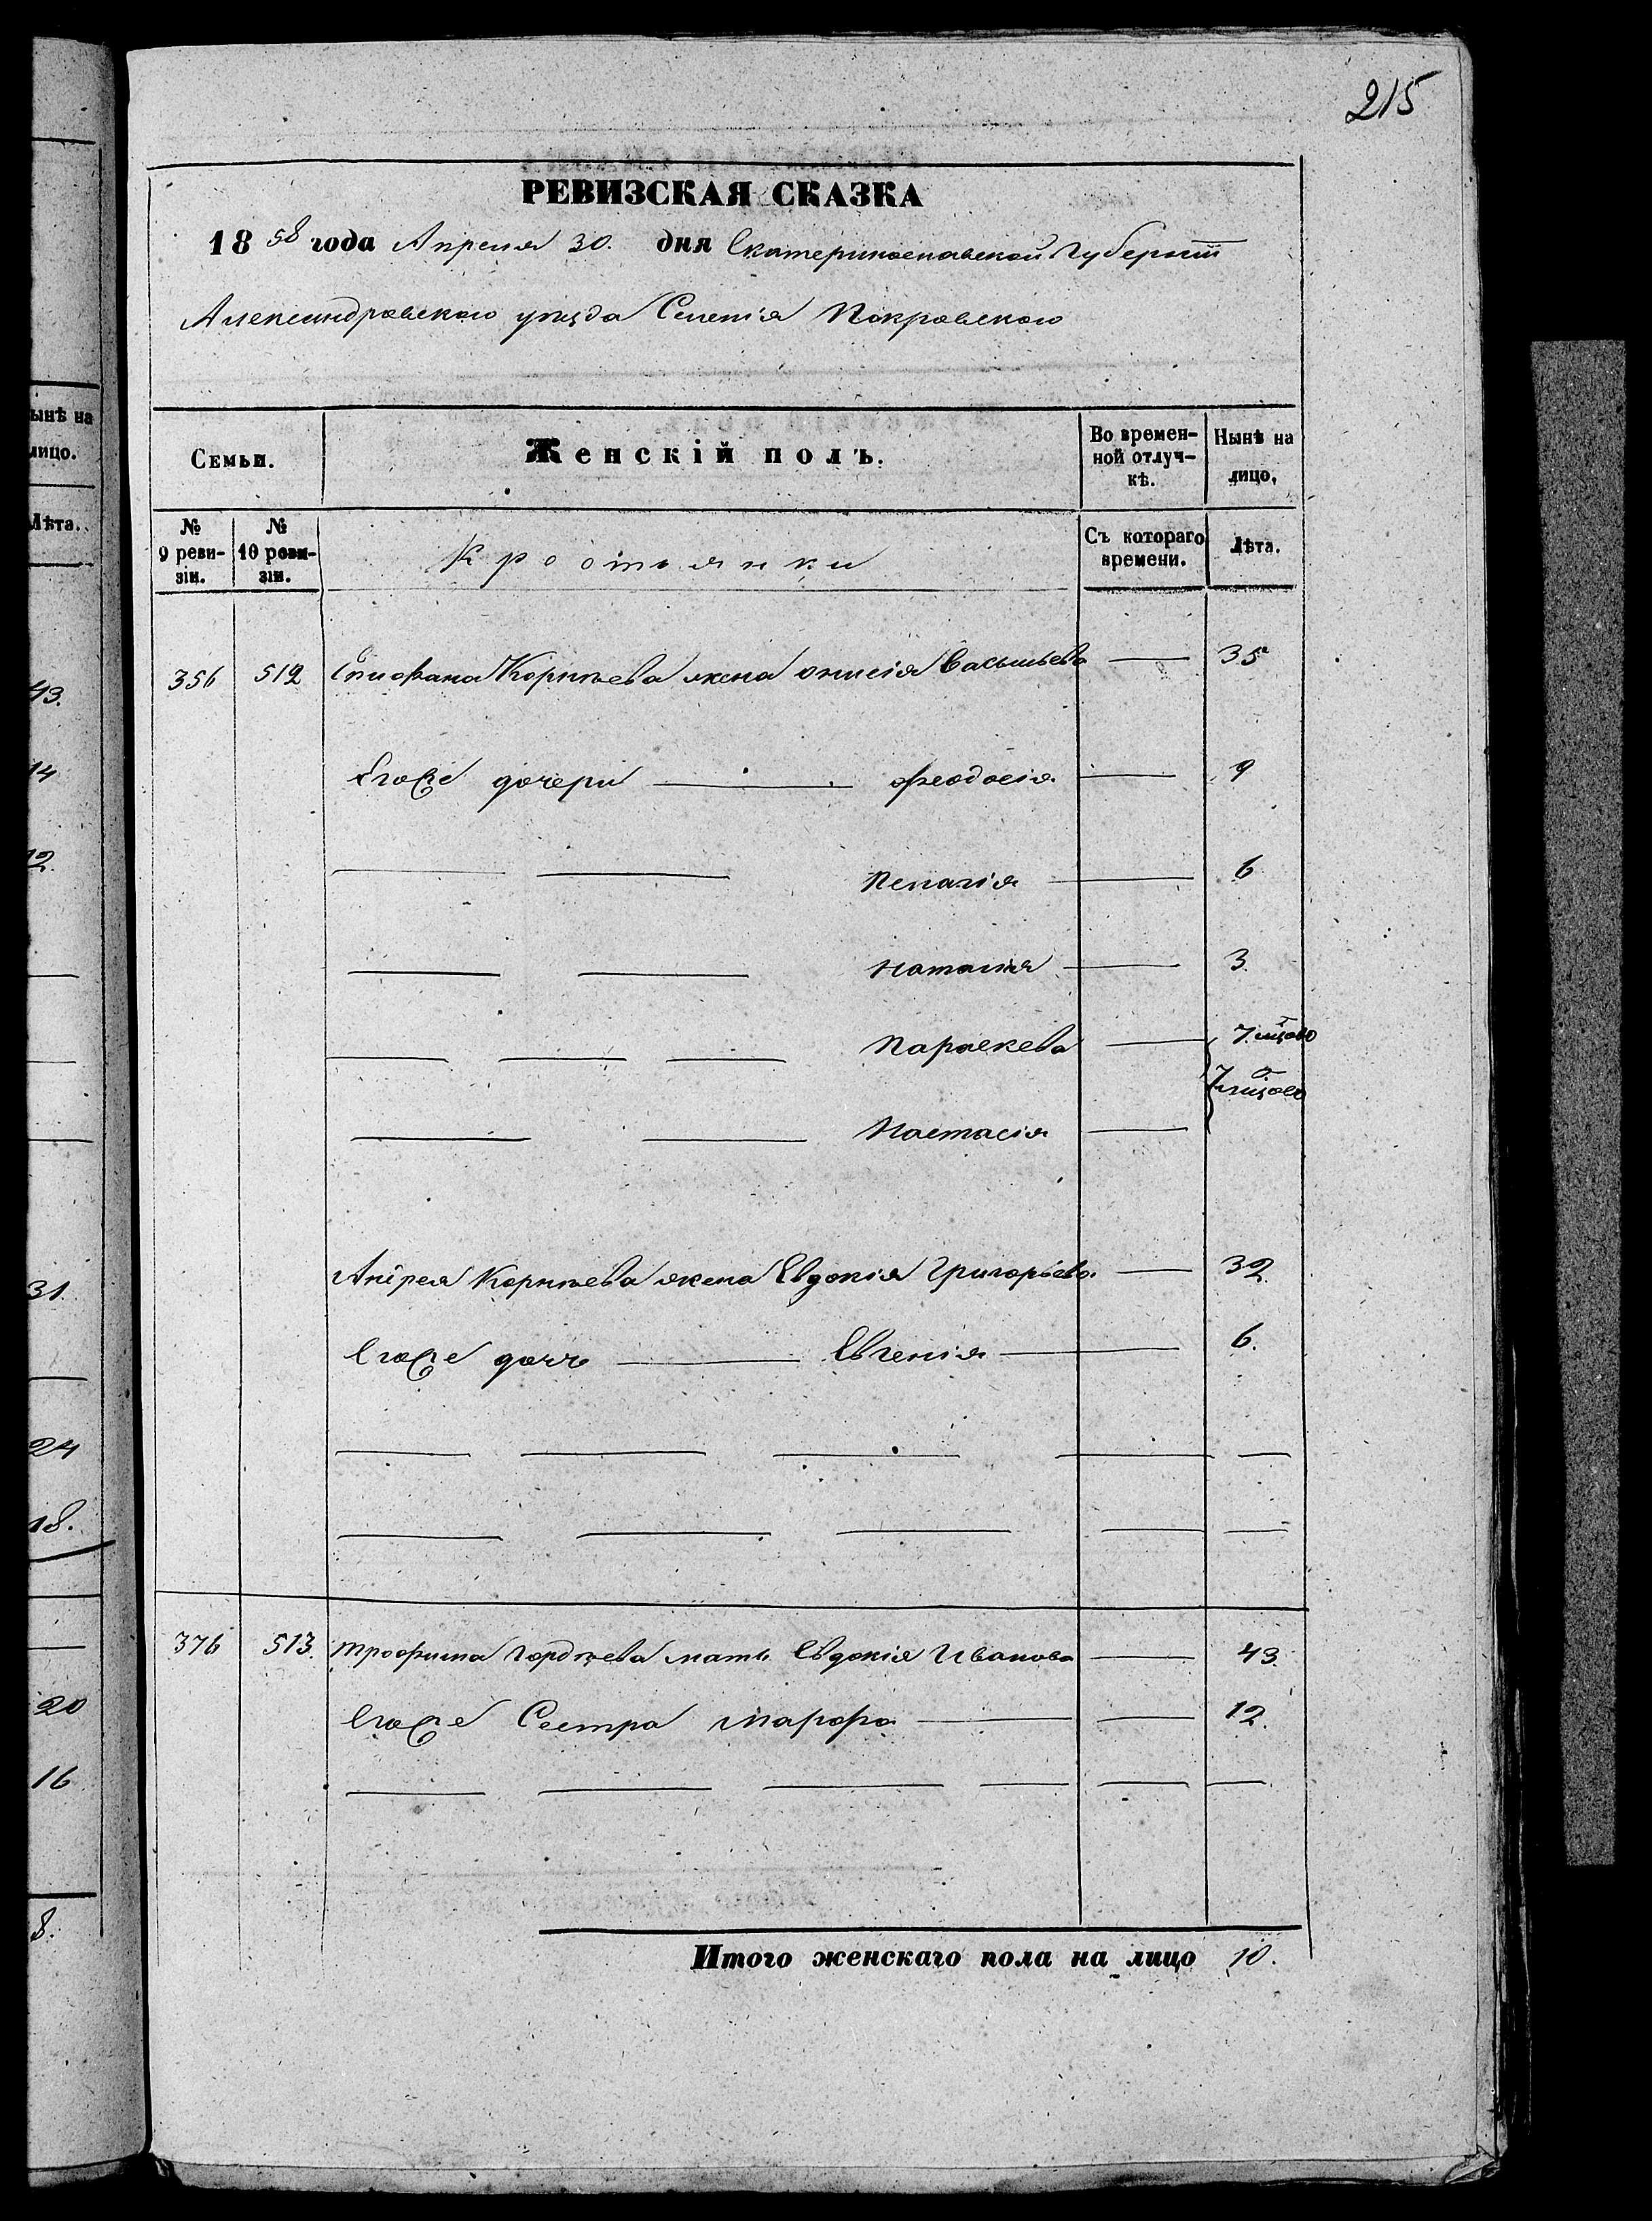 215
РЕВИЗСКАЯ СКАЗКА
1858 года Апреля 30. дня Екатеринославской Губернiи
Александровского уезда Селенiя Покровского
Семьи. Женскiй полъ. Во времен- Нынѣ на
ной отлуч- лицо.
кѣ.
№ № Крестьянки Съ котораго Лѣта.
9 реви- 10 реви- времени.
зiи. зiи.
356 512 Епифана Корнѣева жена Онисiя Васильева — 35
Егоже дочери — Феодосiя — 9
Пелагiя — 6
Наталiя — 3.
Параскева — 7 мѣсяцов
Настасiя — 7 мѣсяцов
Андрея Корнѣева жена Евдокiя Григорьева — 32.
Егоже дочь — Евгенiя — 6.
376 513. Трофима Гордѣева мать Евдокiя Иванова — 43.
Егоже Сестра Марфа — 12.
Итого женскаго пола на лицо 10.
ынѣ на
лицо.
Лѣта.
43.
14
12.
31.
24
18.
20
16
8.